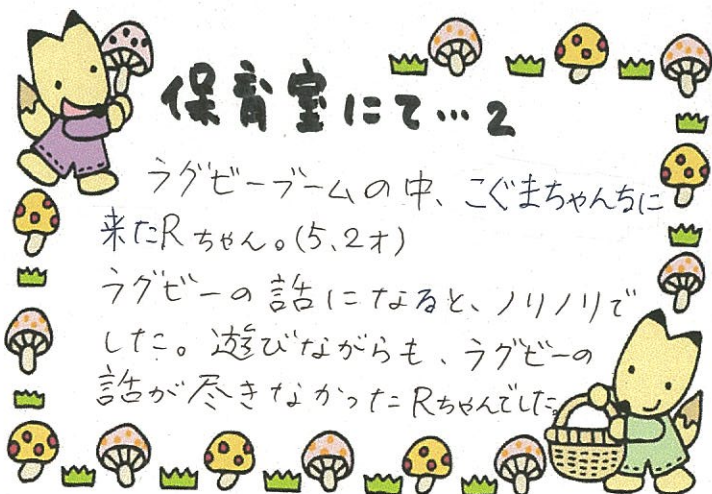 保育室にて…2
ラグビーブームの中、こぐまちゃんちに
来たRちゃん。(5、2才)
ラグビーの話になると、ノリノリで
した。遊びながらも、ラグビーの
話が尽きなかったRちゃんでした。